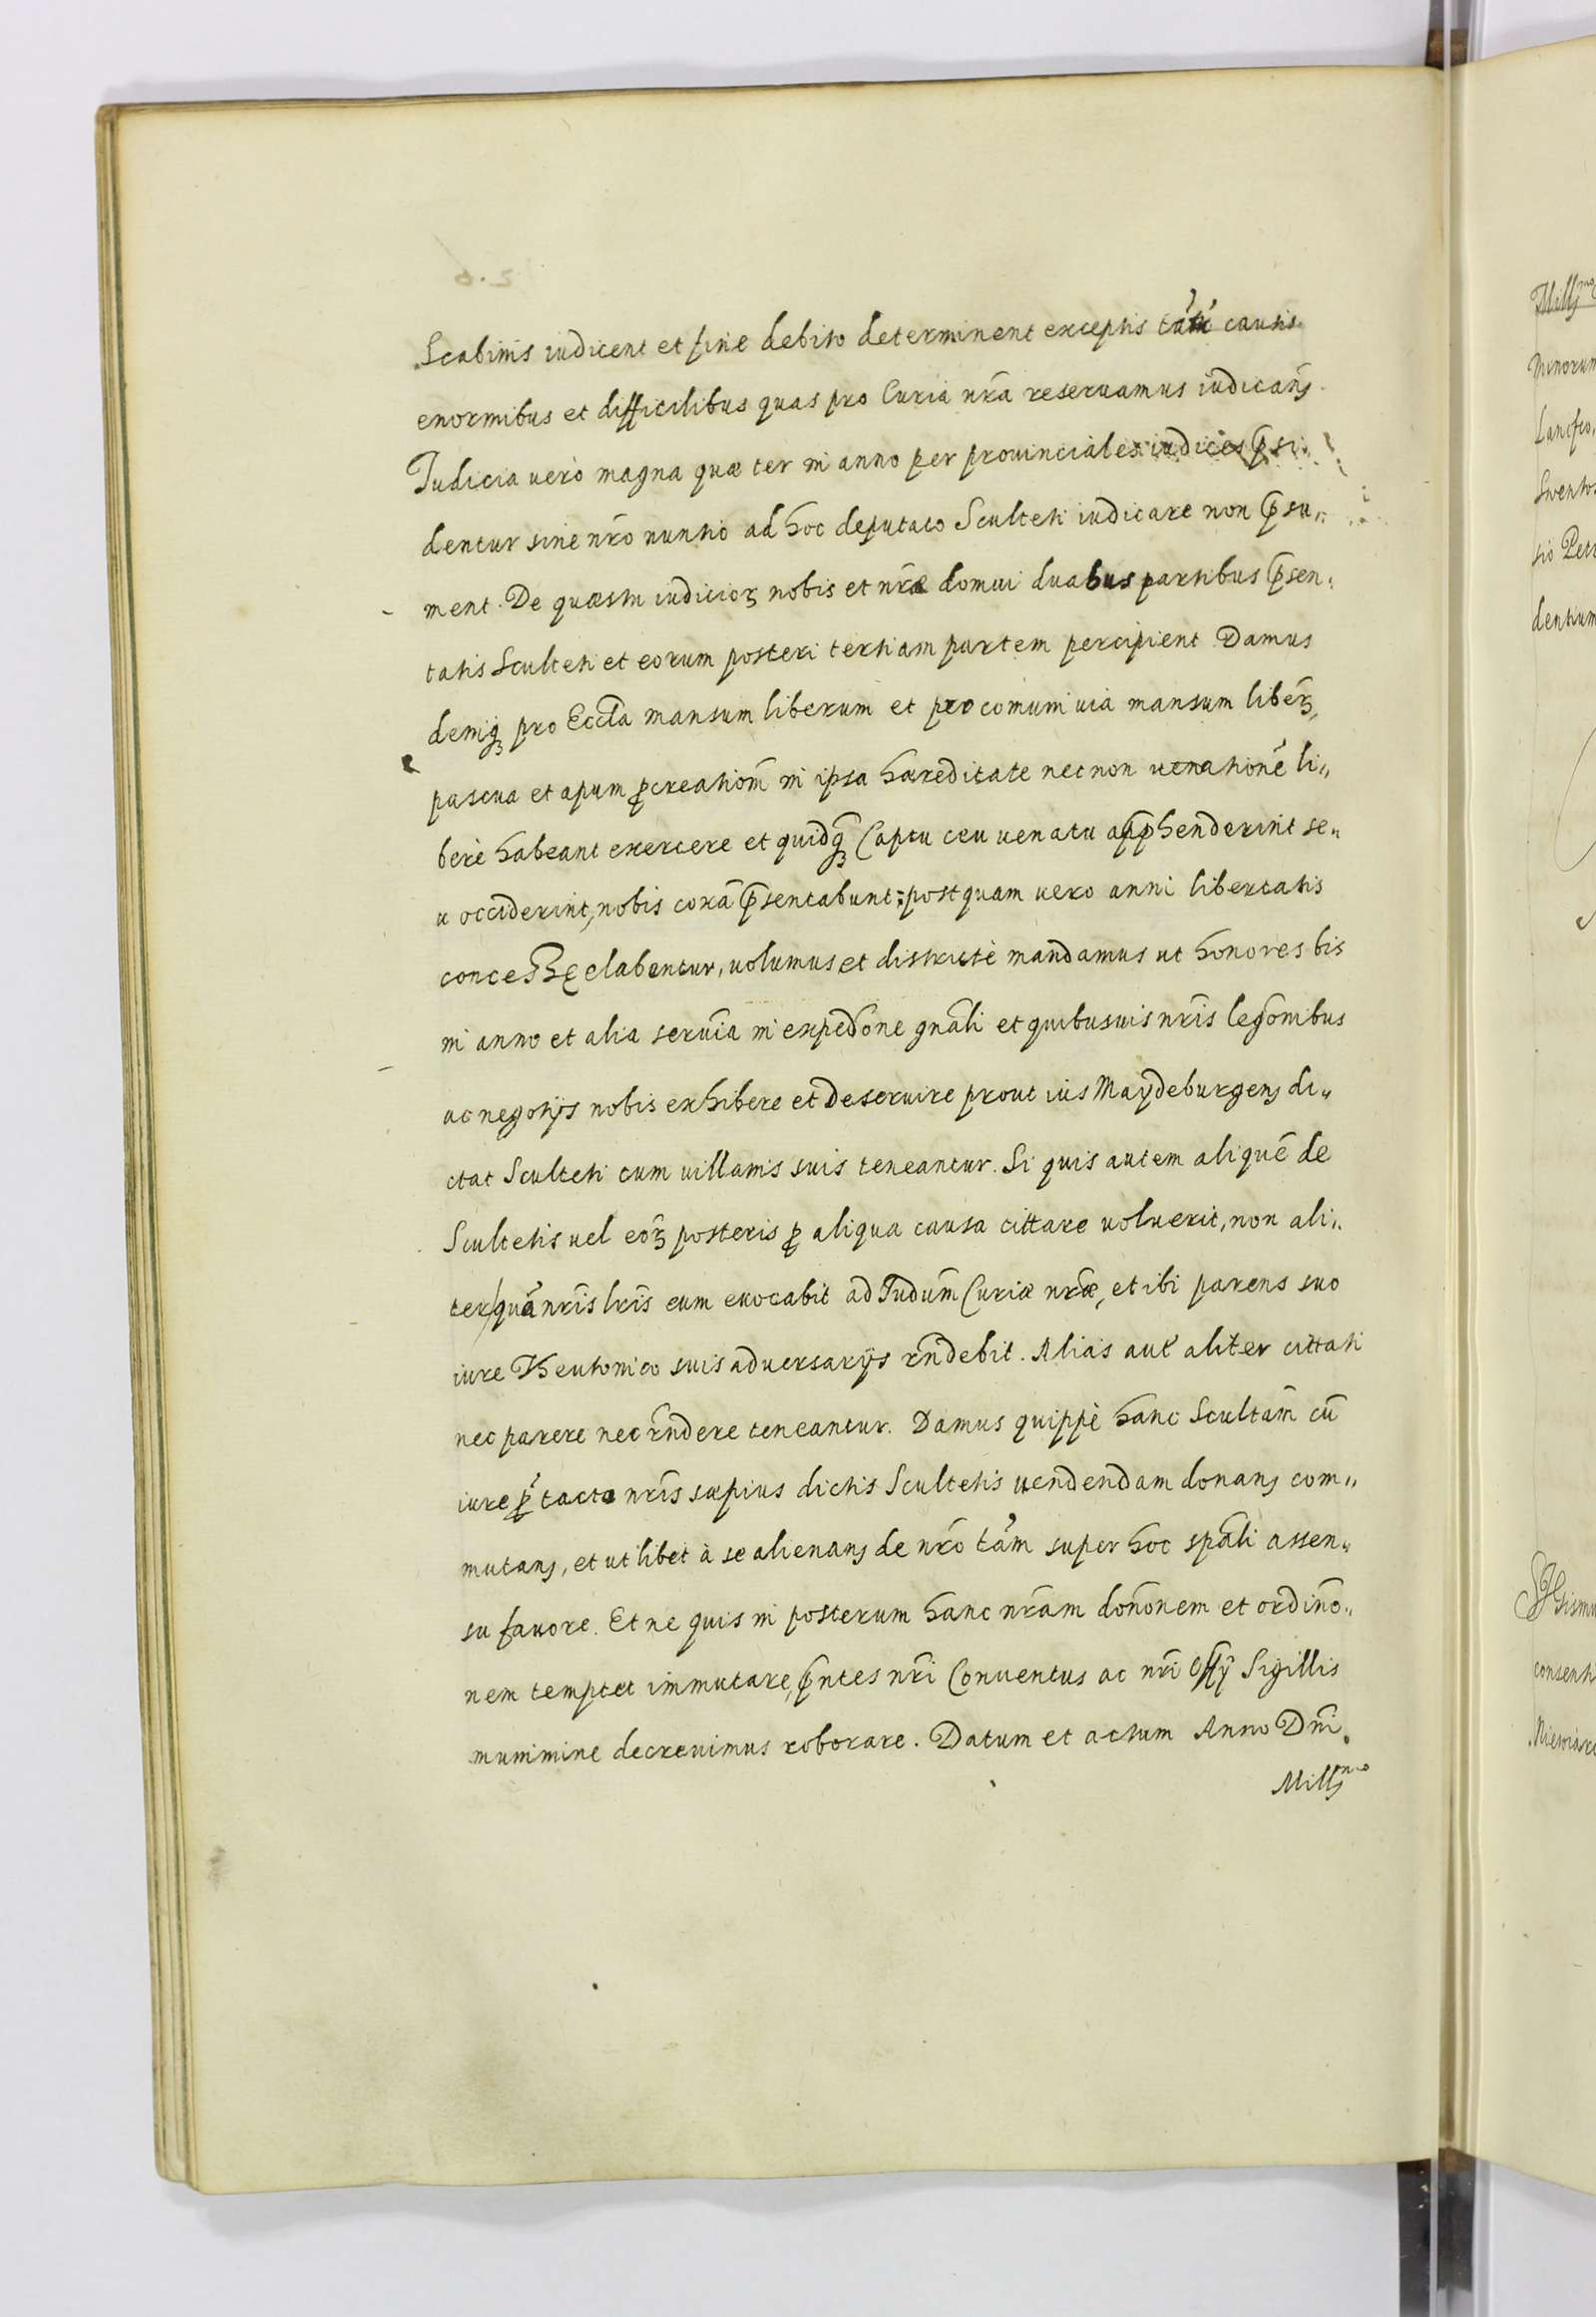 Scabinis iudicent et fine debito determinent exceptis tam̃ causis
enormibus et difficilibus quas pro Curia nr̃a reseruamus iudicanđ.
Iudicia uerò magna quæ ter in anno per prouinciales iudices p̃si„
dentur sine nr̃o nuntio ad hoc deputato Sculteti iudicare non p̃su„
ment. De quæstu iudicioꝝ nobis et nr̃æ domui duabus partibus p̃sen„
tatis Sculteti et eorum posteri tertiam partem percipient Damus
deniqꝫ pro Eccl̃a mansum liberum et pro comuni uia mansum liberꝫ,
pascua et apum ꝓcreationem̃ in ipsa hæreditate necnon uenationē li„
berè habeant exercere et quidqꝫ Captu ceu uenatu app̃henderint se„
u occiderint, nobis corā p̃sentabunt: postquam uero anni libertatis
concessæ elabentur, uolumus et districtè mandamus ut honores bis
in anno et alia seruĩa in exped̃one gñali et quibusuis nr̃is leg̃onibus
ac negotijs nobis exhibere et deseruire prout ius Maydeburgenꝫ di„
ctat Sculteti cum uillanis suis teneantur. Si quis autem aliquē de
Scultetis uel eoꝝ posteris ꝓ aliqua causa cittare uoluerit, non ali„
ter quā nr̃is lr̃is eum euocabit ad Iudiũm Curiæ nr̃æ, et ibi parens suo
iure Theutonico suis aduersarijs rñdebit. Alias aut̃ aliter cittati
nec parere nec rñdere teneantur. Damus quippè hanc Scultam̃ cū
iure p̃tacto nr̃is sæpius dictis Scultetis uendendam donanꝫ com„
mutanꝫ, et ut libet à se alienanꝫ de nr̃o tam̃ super hoc sp̃ali assen„
su fauore. Et ne quis in posterum hanc nr̃am doñonem et ordiño„
nem temptet immutare, p̃ntes nr̃i Conuentus ac nr̃i Offij Sigillis
munimine decreuimus roborare. Datum et actum Anno Dñi
Millꝫmo